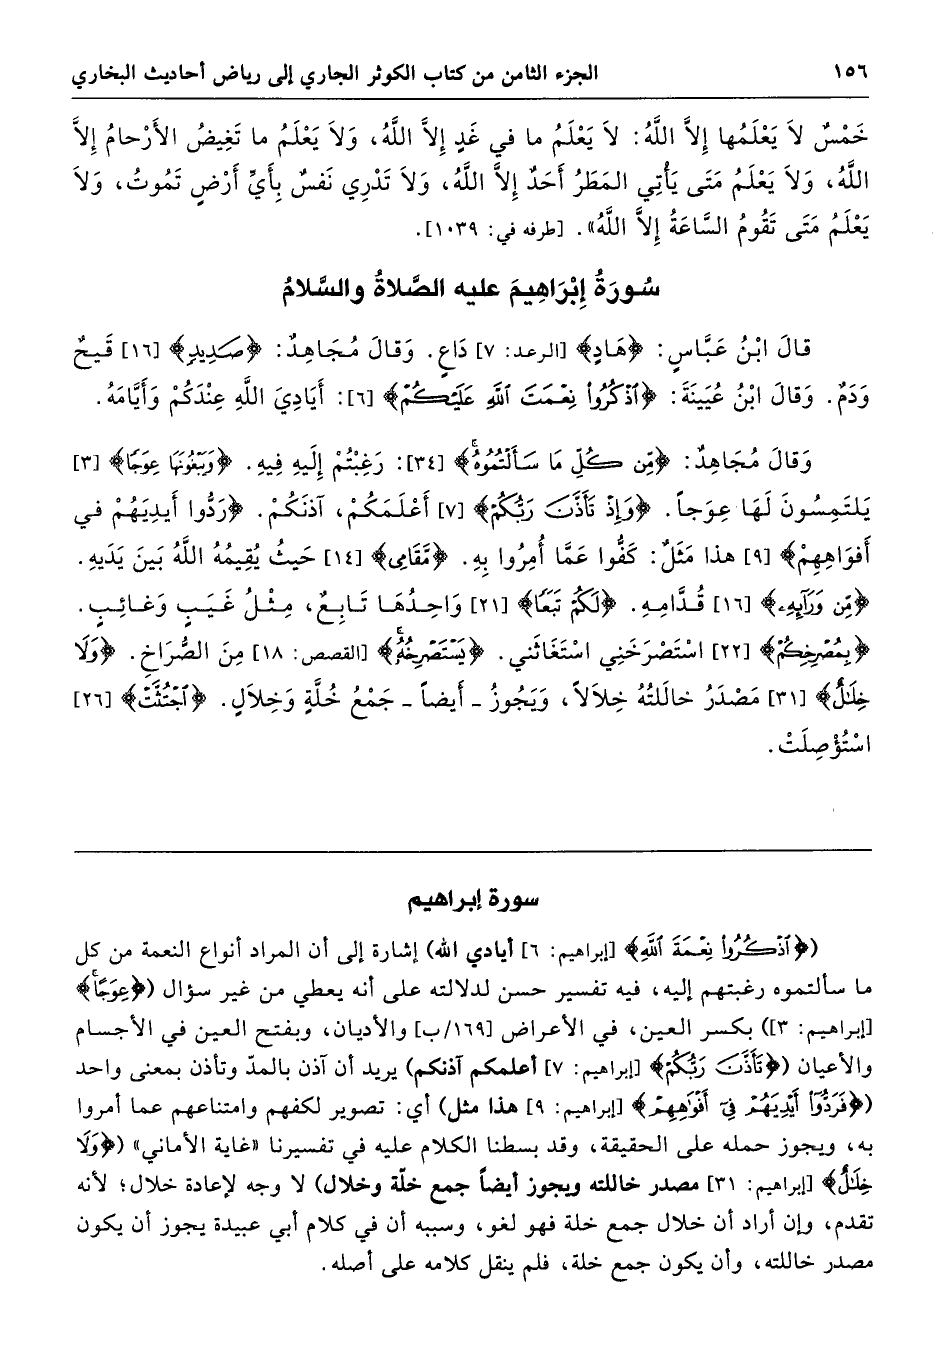 ١٥٦ الجزء الثامن من كتاب الكوثر الجاري إلى رياض أحاديث البخاري
خَمْسٌ لاَ يَعْلَمُها إِلاَّ اللَّهُ: لاَ يَعْلَمُ ما في غَدٍ إِلاَّ اللَّهُ، وَلاَ يَعْلَمُ ما تَغِيضُ الأَرْحامُ إِلاَّ
اللَّهُ، وَلاَ يَعْلَمُ مَتَى يَأْتِي المَطَرُ أَحَدٌ إِلاَّ اللَّهُ، وَلاَ تَدْرِي نَفْسٌ بِأَيِّ أَرْضٍ تَمُوتُ، وَلاَ
يَعْلَمُ مَتَى تَقُومُ السَّاعَةُ إِلاَّ اللَّهُ». [طرفه في: ١٠٣٩].
سُورَةُ إِبْرَاهِيمَ عليه الصَّلاةُ والسَّلامُ
قالَ ابْنُ عَبَّاسٍ: ﴿هَادٍ﴾ [الرعد: ٧] دَاعٍ. وَقالَ مُجَاهِدٌ: ﴿صَكِدِيدٍ﴾ [١٦] قَيحٌ
وَدَمٌ. وَقالَ ابْنُ عُيَينَةَ: ﴿ٱذْكُرُواْ نِعْمَتَ ٱللَّهِ عَلَيْكُمْ﴾ [٦]: أَيَادِيَ اللَّهِ عِنْدَكُمْ وَأَيَّامَهُ.
وَقالَ مُجَاهِدٌ: ﴿مِّن كُلِّ مَا سَأَلْتُمُوهُ﴾ [٣٤]: رَغِبْتُمْ إِلَيهِ فِيهِ. ﴿وَيَبْغُونَهَا عِوَجًا﴾ [٣]
يَلتَمِسُونَ لَهَا عِوَجاً. ﴿وَإِذْ تَأَذَّنَ رَبُّكُمْ﴾ [٧] أَعْلَمَكُمْ، آذَنَكُمْ. ﴿رَدُّوا أَيدِيَهُمْ في
أَفوَاهِهِمْ﴾ [٩] هذا مَثَلٌ: كَفُّوا عَمَّا أُمِرُوا بِهِ. ﴿مَقَامِى﴾ [١٤] حَيثُ يُقِيمُهُ اللَّهُ بَينَ يَدَيهِ.
﴿مِّن وَرَآئِهِۦ﴾ [١٦] قُدَّامِهِ. ﴿لَكُمْ تَبَعًا﴾ [٢١] وَاحِدُهَا تَابِعٌ، مِثْلُ غَيَبٍ وَغائِبٍ.
﴿بِمُصْرِخِكُمْ﴾ [٢٢] اسْتَصْرَخَنِي اسْتَغَاثَنِي. ﴿يَسْتَصْرِخُهُ﴾ [القصص: ١٨] مِنَ الصُّرَاخِ. ﴿وَلَا
خِلَٰلٌ﴾ [٣١] مَصْدَرُ خالَلتُهُ خِلاَلاً، وَيَجُوزُ ـ أَيضاً ـ جَمْعُ خُلَّةٍ وَخِلاَلٍ. ﴿ٱجْتُثَّتْ﴾ [٢٦]
اسْتُؤْصِلَتْ.
سورة إبراهيم
(﴿ٱذْكُرُواْ نِعْمَةَ ٱللَّهِ﴾ [إبراهيم: ٦] أيادي الله) إشارة إلى أن المراد أنواع النعمة من كل
ما سألتموه رغبتهم إليه، فيه تفسير حسن لدلالته على أنه يعطي من غير سؤال (﴿عِوَجًا﴾
[إبراهيم: ٣]) بكسر العين، في الأعراض [١٦٩/ب] والأديان، وبفتح العين في الأجسام
والأعيان (﴿تَأَذَّنَ رَبُّكُمْ﴾ [إبراهيم: ٧] أعلمكم آذنكم) يريد أن آذن بالمدّ وتأذن بمعنى واحد
(﴿فَرَدُّوٓاْ أَيْدِيَهُمْ فِىٓ أَفْوَٰهِهِمْ﴾ [إبراهيم: ٩] هذا مثل) أي: تصوير لكفهم وامتناعهم عما أمروا
به، ويجوز حمله على الحقيقة، وقد بسطنا الكلام عليه في تفسيرنا «غاية الأماني» (﴿وَلَا
خِلَٰلٌ﴾ [إبراهيم: ٣١] مصدر خاللته ويجوز أيضاً جمع خلّة وخلال) لا وجه لإعادة خلال؛ لأنه
تقدم، وإن أراد أن خلال جمع خلة فهو لغو، وسببه أن في كلام أبي عبيدة يجوز أن يكون
مصدر خاللته، وأن يكون جمع خلة، فلم ينقل كلامه على أصله.